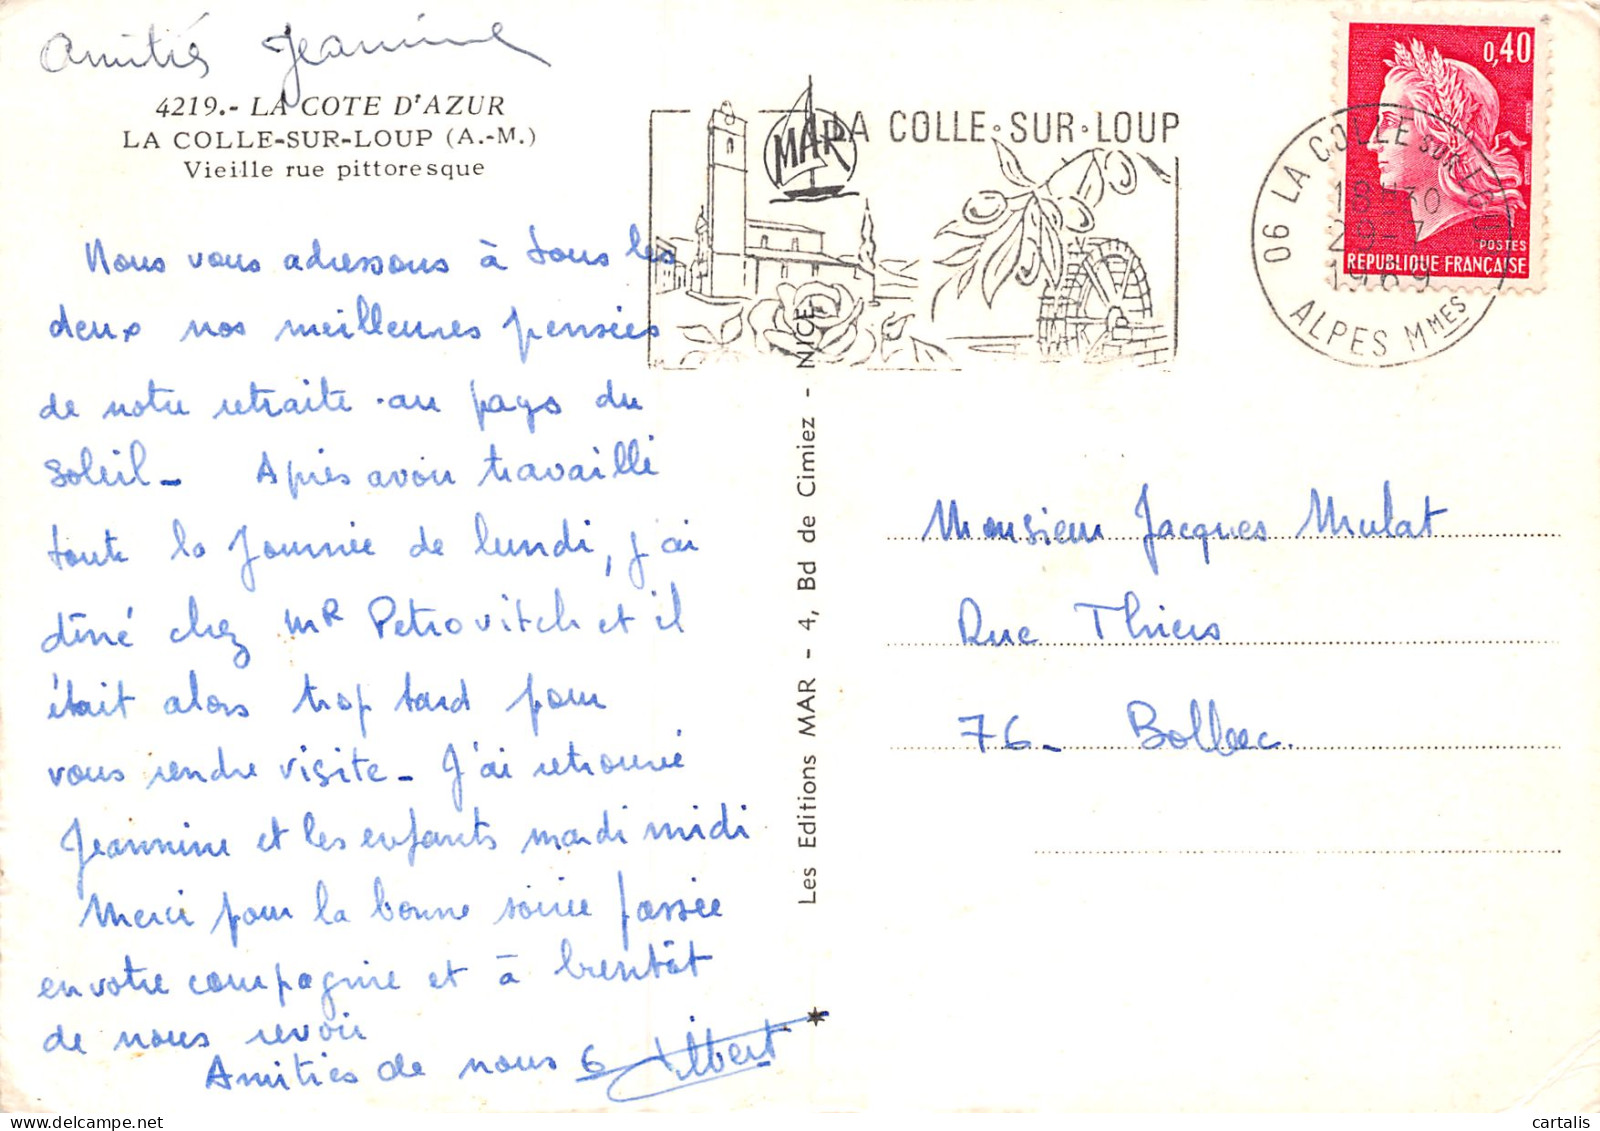 Amitiés Jeannine
4219.- LA COTE D'AZUR
LA COLLE-SUR-LOUP (A.-M.)
Vieille rue pittoresque
Nous vous adressons à tous les
deux nos meilleures pensées
de notre retraite au pays du
soleil - Après avoir travaillé
toute la journée de lundi, j'ai
dîné chez MR Petrovitch et il
était alors trop tard pour
vous rendre visite - J'ai retrouvé
Jeannine et les enfants mardi midi
Merci pour la bonne soirée passée
en votre compagnie et à bientôt
de nous revoir
Amitiés de nous 6 Albert
MAR
LA COLLE·SUR·LOUP
Les Editions MAR - 4, Bd de Cimiez - NICE
0,40
POSTES
REPUBLIQUE FRANÇAISE
06 LA COLLE SUR LOUP
18H30
29-7
1969
ALPES MMES
Monsieur Jacques Mulat
Rue Thiers
76- Bolbec.
cartalis
delcampe.net